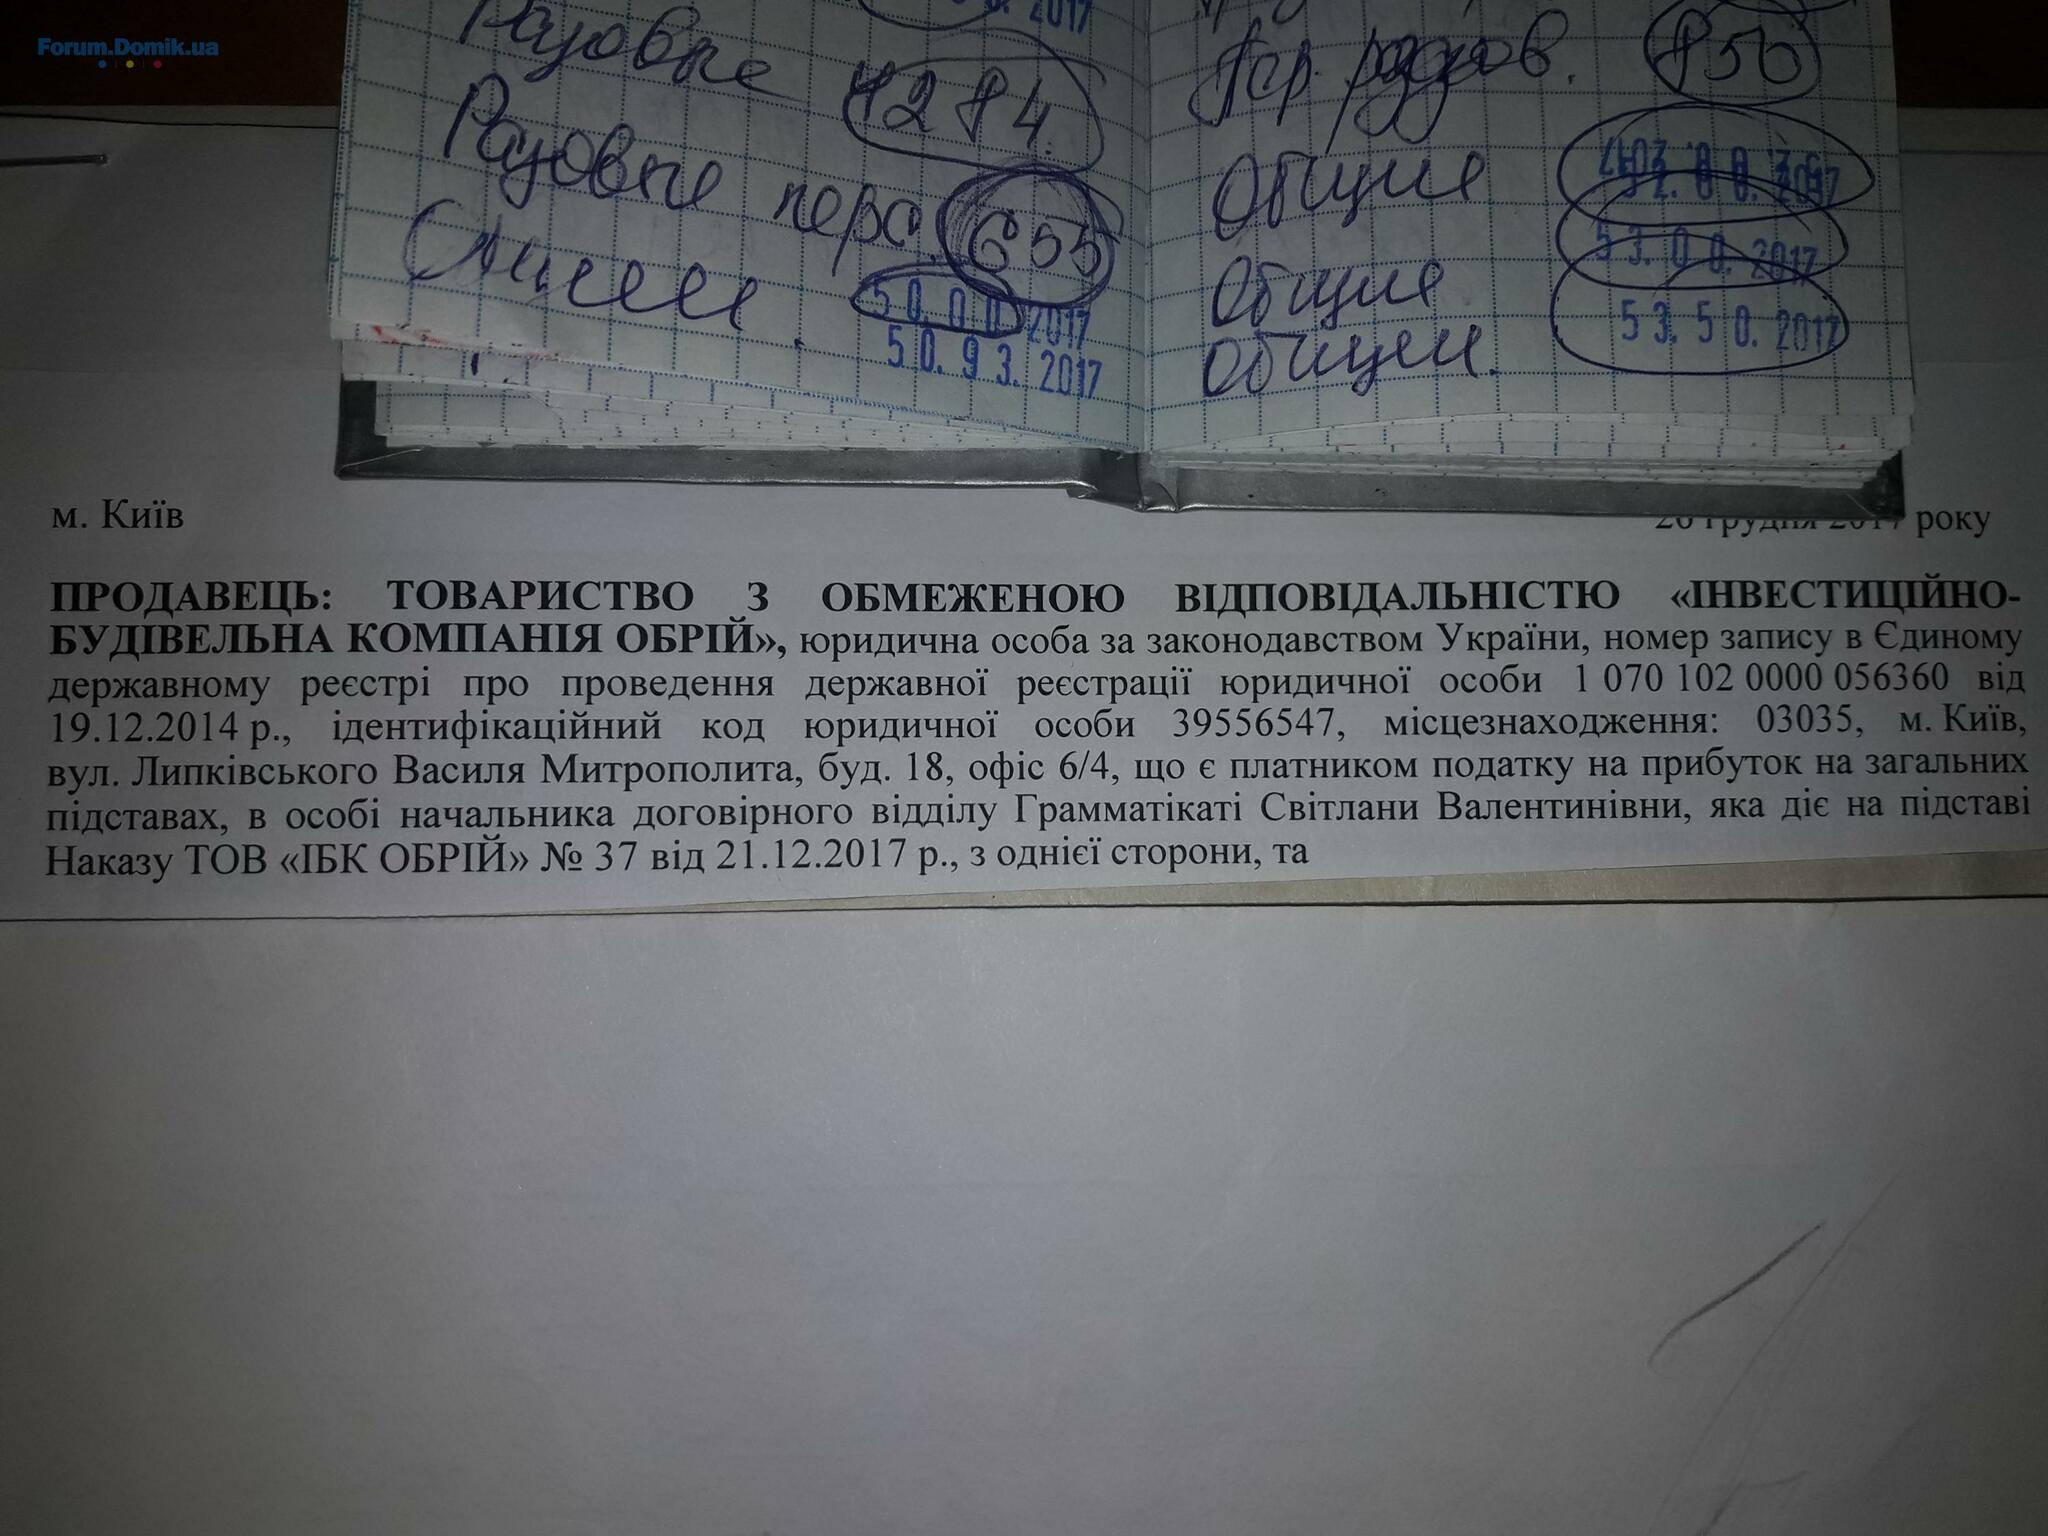 Forum.Domik.ua
2017
Разовые 4284.
Разовые перс. 655
50.00.2017
50.93.2017
856
Общие
Общие 53.00.2017
Общии. 53.50.2017
м. Київ 26 грудня 2017 року
ПРОДАВЕЦЬ: ТОВАРИСТВО З ОБМЕЖЕНОЮ ВІДПОВІДАЛЬНІСТЮ «ІНВЕСТИЦІЙНО-
БУДІВЕЛЬНА КОМПАНІЯ ОБРІЙ», юридична особа за законодавством України, номер запису в Єдиному
державному реєстрі про проведення державної реєстрації юридичної особи 1 070 102 0000 056360 від
19.12.2014 р., ідентифікаційний код юридичної особи 39556547, місцезнаходження: 03035, м. Київ,
вул. Липківського Василя Митрополита, буд. 18, офіс 6/4, що є платником податку на прибуток на загальних
підставах, в особі начальника договірного відділу Грамматікаті Світлани Валентинівни, яка діє на підставі
Наказу ТОВ «ІБК ОБРІЙ» № 37 від 21.12.2017 р., з однієї сторони, та